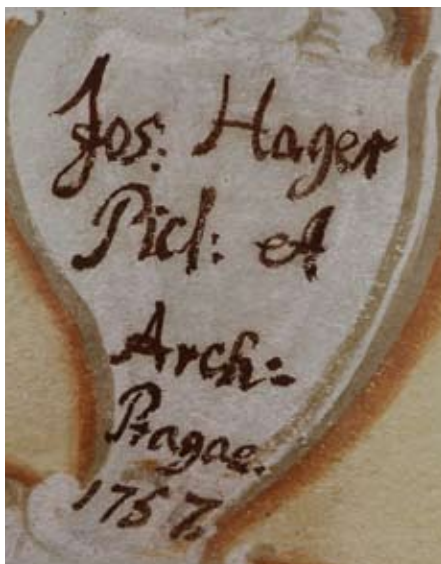 Jos: Hager
Pict: et
Arch:
Pragae.
1757.